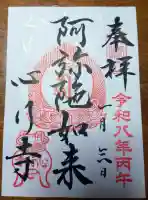 奉拝
令和八年丙午
一月二八日
阿弥陀如来
心行寺